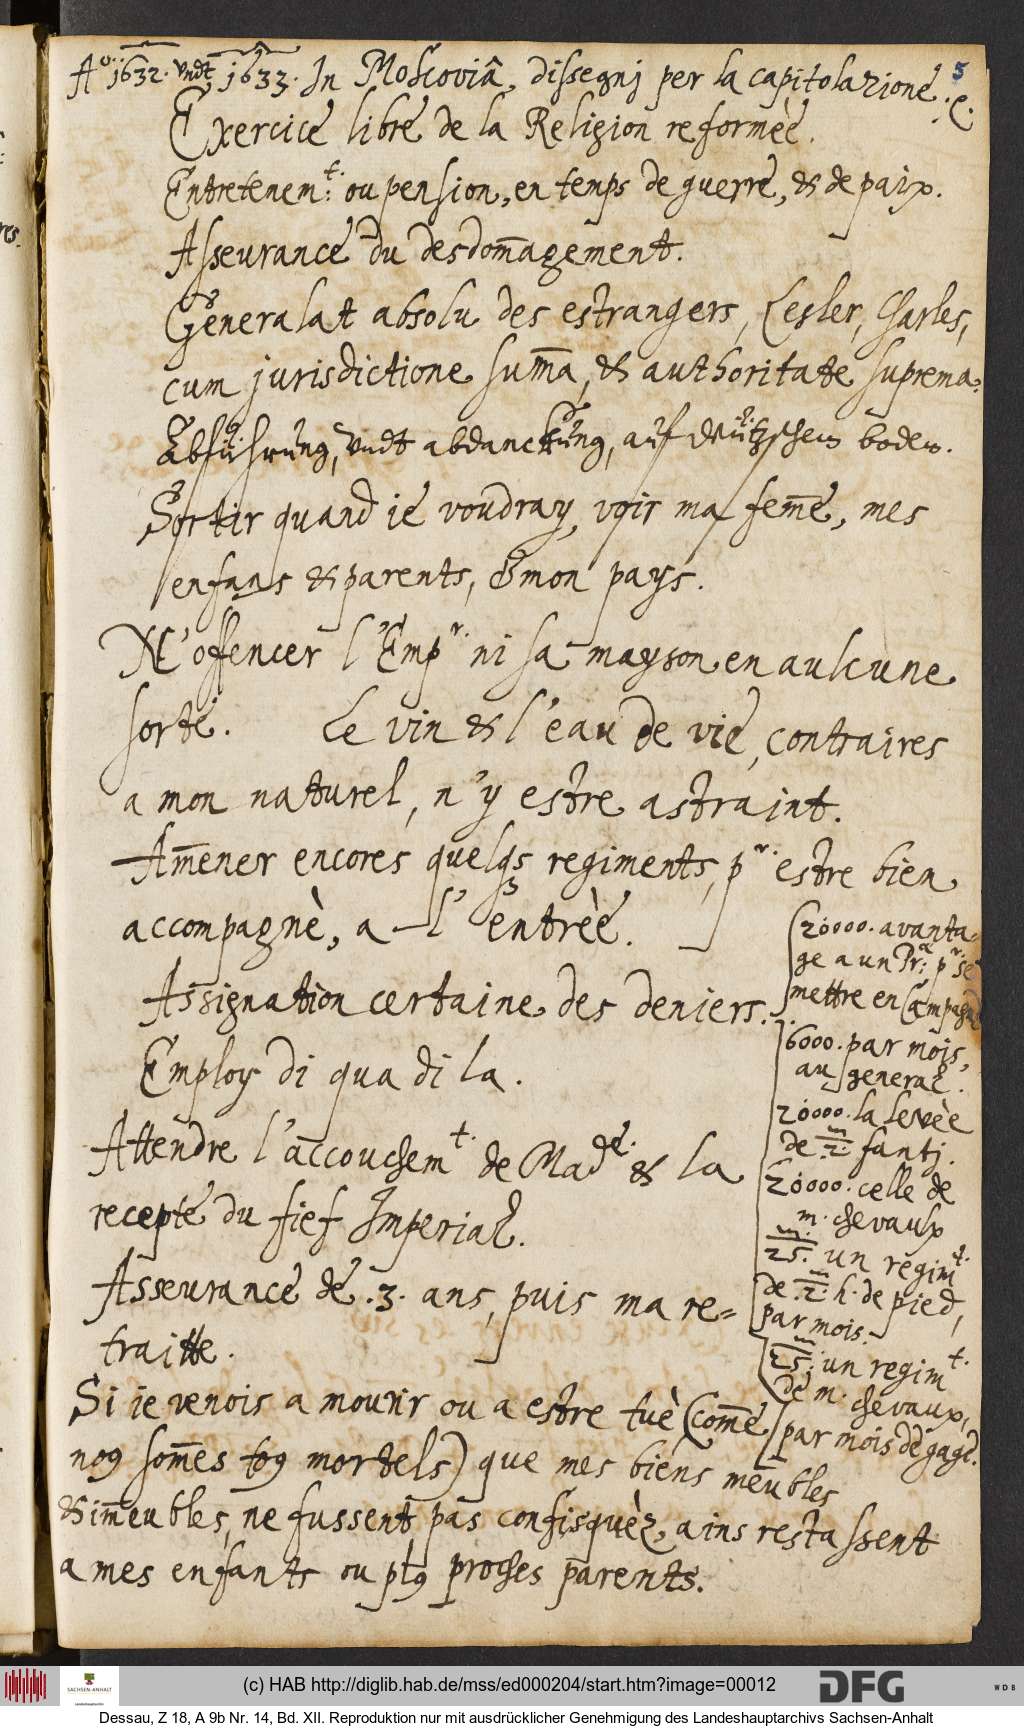 Aº 1632. undt 1633. In Moscoviâ, dissegnj per la capitolazione. e.
5
Exercice libre de la Religion reformèe.
Entretenem:t ou pension, en temps de guerre, & de paix.
Asseurance du desdom̄agement.
Generalat absolu des estrangers, Lesler, Charles,
cum jurisdictione sum̄a, & authoritate suprema.
Abführung, undt abdanckung, auf deützschem boden.
Sortir quand ie voudray, voir ma fem̄e, mes
enfans & parents, & mon pays.
N'offencer l'Empr. ni sa mayson en aulcune
sorte. Le vin & l'eau de vie, contraires
a mon naturel, n'y estre astraint.
Am̄ener encores quelqs regiments, pr. estre bien
accompagnè, a l'entrèe.
Assignation certaine des deniers.
Employ di qua di la.
Attendre l'accouchemt. de Made. & la
recepte du fief Imperial.
Asseurance de .3. ans, puis ma re=
traitte.
Si ie venois a mourir ou a estre tuè (com̄e
no9 som̄es to9 mortels) que mes biens meubles
& im̄eubles, ne fussent pas confisquèz, ains restassent
a mes enfants ou pl9 proches parents.
20000. avanta-
ge a un Pr: pr. se
mettre en Campagne
6000. par mois,
au general.
20000. la levèe
de .2. fantj.
20000. celle de
m. chevaulx
25. un regimt.
de .2. h. de pied,
par mois.
25. un regimt.
de m. chevaux,
par mois de gage.
(c) HAB http://diglib.hab.de/mss/ed000204/start.htm?image=00012
SACHSEN-ANHALT
Landeshauptarchiv
DFG
WDB
Dessau, Z 18, A 9b Nr. 14, Bd. XII. Reproduktion nur mit ausdrücklicher Genehmigung des Landeshauptarchivs Sachsen-Anhalt